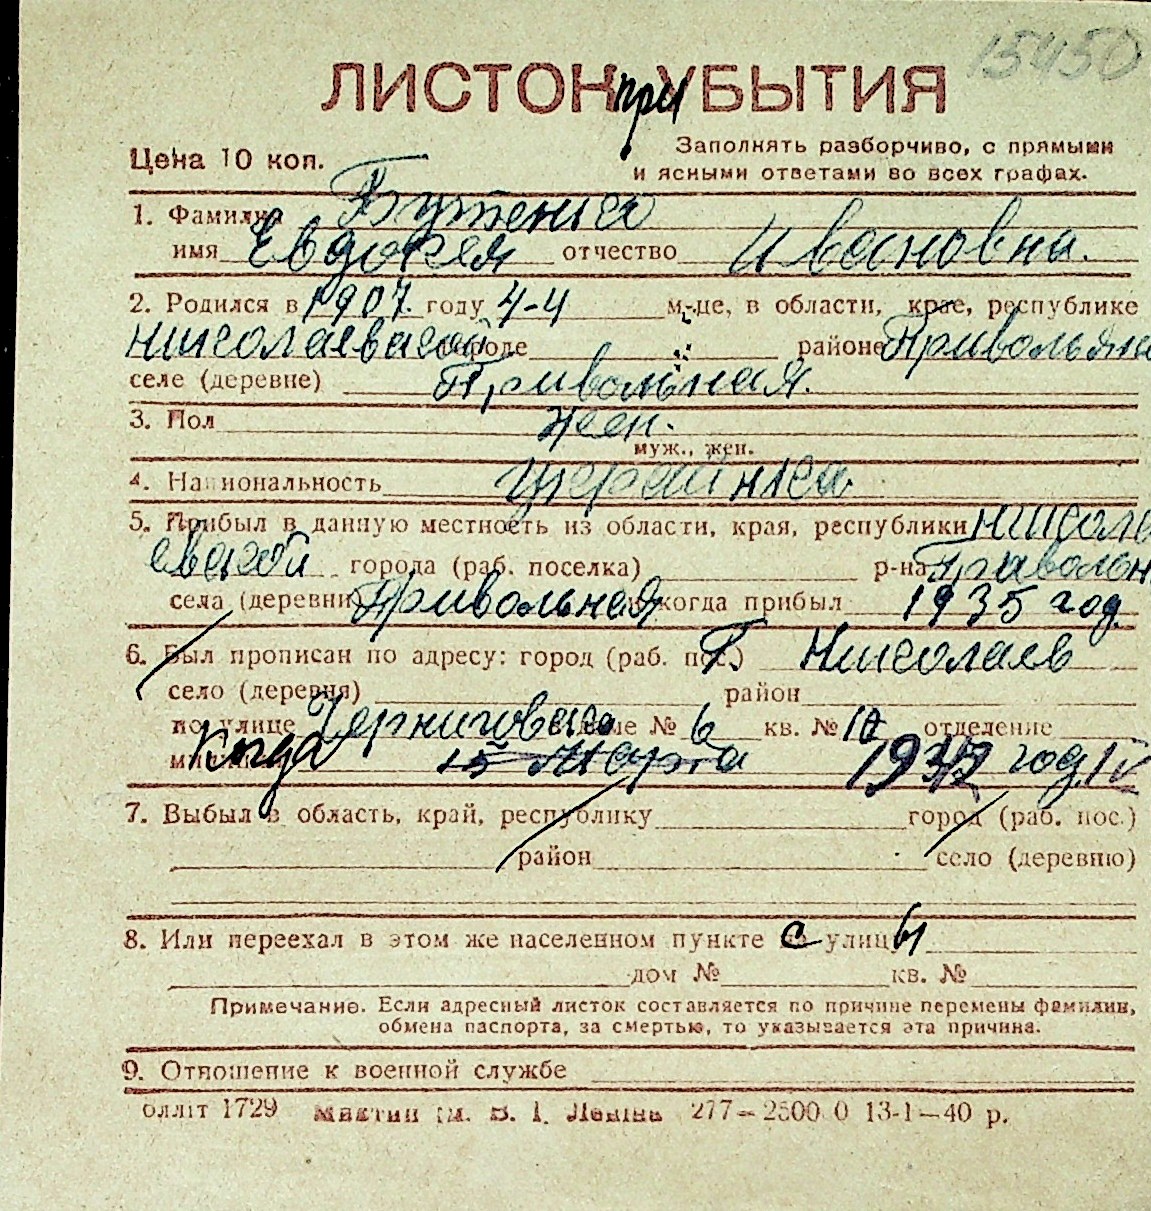 15450
ЛИСТОК приУБЫТИЯ
Цена 10 коп.
Заполнять разборчиво, с прямыми
и ясными ответами во всех графах.
1. Фамилия Бутенко
имя Евдокея отчество Ивановна.
2. Родился в 1907. году 4-4 м-це, в области, крае, республике
николаевской городе районе Привольян
селе (деревне) Привольная.
3. Пол жен.
муж., жен.
4. Национальность украинка
5. Прибыл в данную местность из области, края, республики никола
евской города (раб. поселка) р-на Привольн
села (деревни) Привольная и когда прибыл 1935 год.
6. Был прописан по адресу: город (раб. пос.) г. Николаев
село (деревня) район
по улице Черниговская доме № 6 кв. № 10 отделение
Когда 15 Марта год. IV
7. Выбыл в область, край, республику город (раб. пос.)
район село (деревню)
8. Или переехал в этом же населенном пункте с улицы
дом № кв. №
Примечание. Если адресный листок составляется по причине перемены фамилии,
обмена паспорта, за смертью, то указывается эта причина.
9. Отношение к военной службе
оллiт 1729 ім. В. І. Леніна 277—2500 0 13-1—40 р.